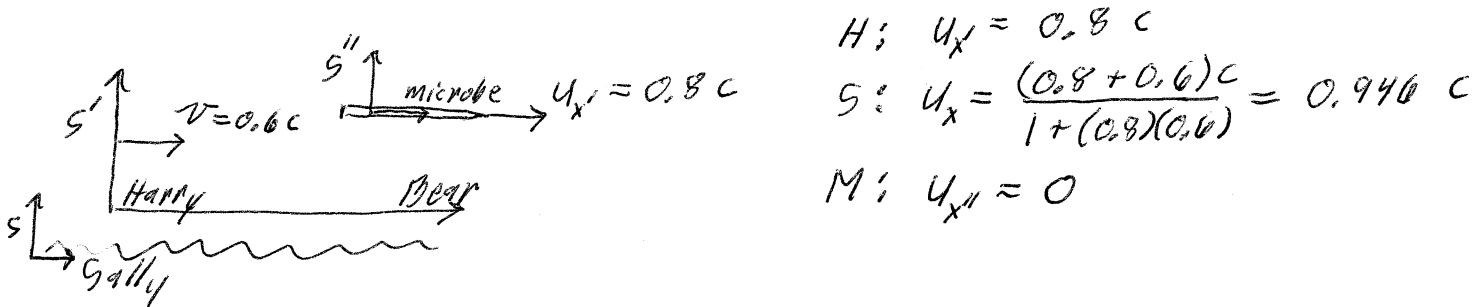 S' v=0.6 c
S'' microbe u_x' = 0.8 c
Harry Bear
S Sally
H: u_x' = 0.8 c
S: u_x = (0.8 + 0.6) c / 1 + (0.8)(0.6) = 0.946 c
M: u_x'' = 0